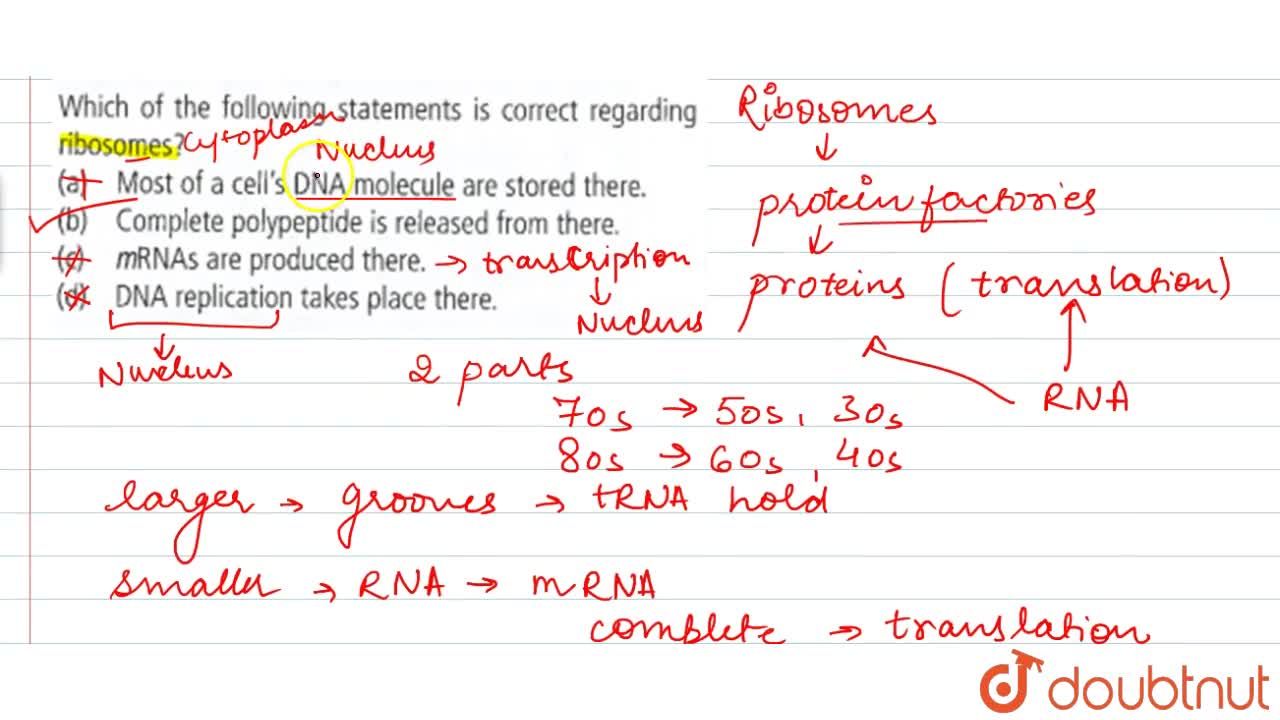 Which of the following statements is correct regarding
ribosomes? Cytoplasm
Nucleus
(a) Most of a cell's DNA molecule are stored there.
(b) Complete polypeptide is released from there.
(c) mRNAs are produced there. → transcription
↓
Nucleus
(d) DNA replication takes place there.
↓
Nucleus
Ribosomes
↓
protein factories
↓
proteins (translation)
RNA
2 parts
70s → 50s, 30s
80s → 60s, 40s
larger → grooves → tRNA hold
smaller → RNA → mRNA
complete → translation
doubtnut